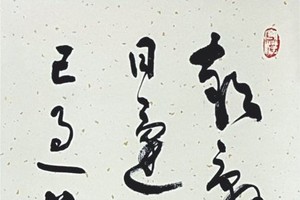 朝辭
日還
已過